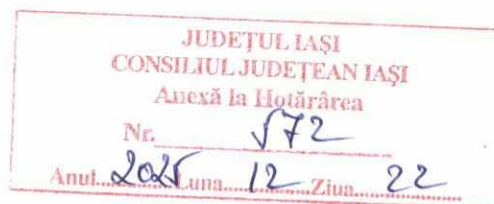 JUDEȚUL IAȘI
CONSILIUL JUDEȚEAN IAȘI
Anexă la Hotărârea
Nr. 572
Anul 2025 Luna 12 Ziua 22